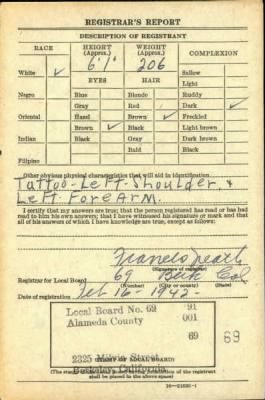 REGISTRAR'S REPORT
DESCRIPTION OF REGISTRANT
RACE HEIGHT (Approx.) WEIGHT (Approx.) COMPLEXION
6'1" 206
White ✓ EYES HAIR Sallow
Light
Negro Blue Blonde Ruddy
Gray Red Dark ✓
Oriental Hazel Brown ✓ Freckled
Brown ✓ Black Light brown
Indian Black Gray Dark brown
Bald Black
Filipino
Other obvious physical characteristics that will aid in identification
Tattoo-Left-Shoulder &
Left ForeArm.
I certify that my answers are true; that the person registered has read or has had
read to him his own answers; that I have witnessed his signature or mark and that
all of his answers of which I have knowledge are true, except as follows:
Francis
(Signature of registrar)
Registrar for Local Board 69 Berk Cal
(Number) (City or county) (State)
Date of registration Feb 16-1942-
Local Board No. 69 91
Alameda County 001
69 69
2325 Milvia Street
Berkeley, California
(STAMP OF LOCAL BOARD)
(The stamp of the Local Board having jurisdiction of the registrant
shall be placed in the above space)